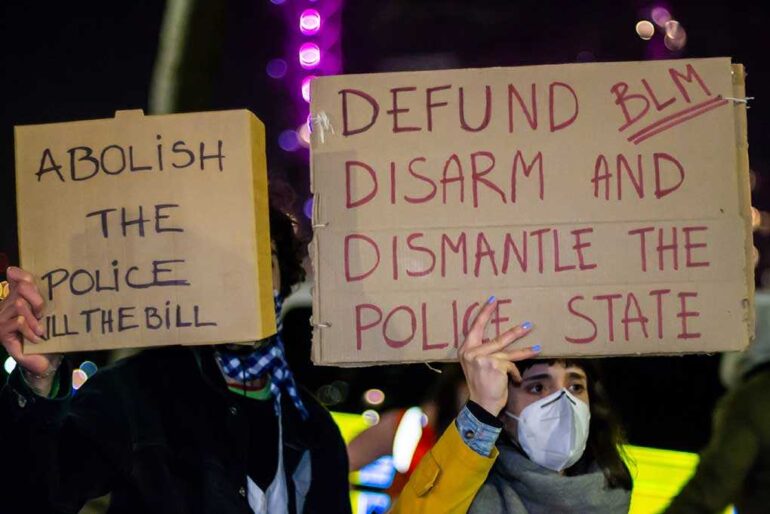 ABOLISH
THE
POLICE
KILLTHEBILL
DEFUND BLM
DISARM AND
DISMANTLE THE
POLICE STATE